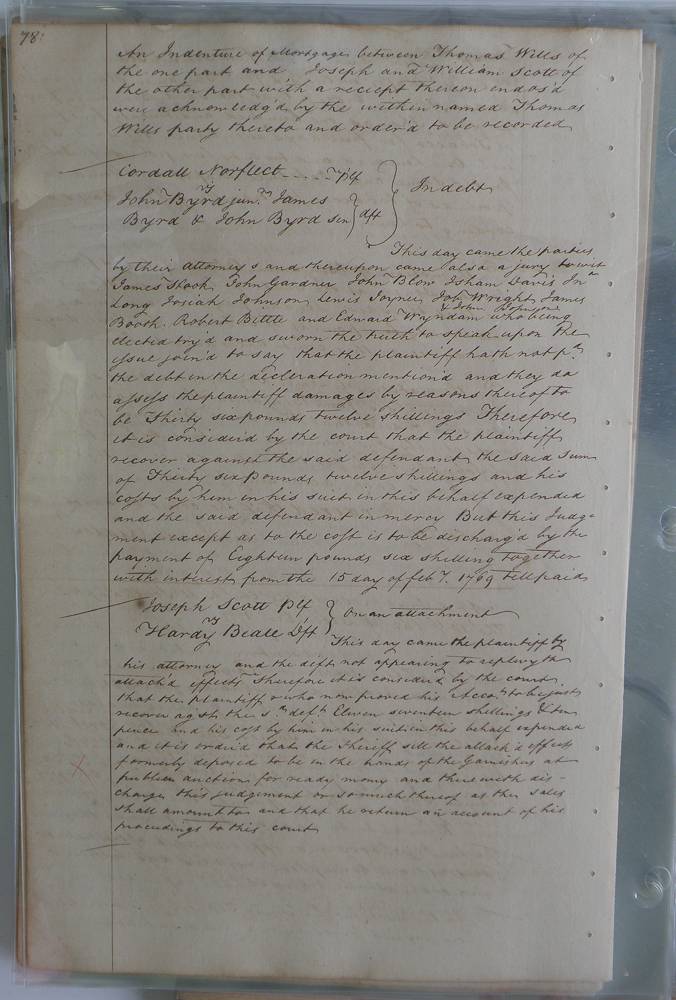 78:
An Indenture of Mortgage between Thomas Wills of
the one part and Joseph and William Scott of
the other part with a reciept thereon endos'd
were acknowledg'd by the within named Thomas
Wills party thereto and order'd to be recorded
Cordall Norflect plf
John Byrd junr. James
Byrd & John Byrd sen dft
vs
In debt
This day came the parties
by their attorney s and thereupon came also a jury to wit
James John Gardner John Blow Isham Davis Jno
Long Josiah Johnson Lewis Joyner Job Wright James
& John Johnson
Booth Robert Bittle and Edward Wyndam who being
elected try'd and sworn the truth to speak upon the
issue join'd to say that the plaintiff hath not pd.
the debt in the decleration mention'd and they do
assess the plaintiff damages by reasons thereof to
be Thirty six pounds twelve shillings Therefore
it is considerd by the court that the plaintiff
recover against the said defendant the said sum
of Thirty six Pounds twelve shillings and his
costs by him in his suit in this behalf expended
and the said defendant in mercy But this Judge
ment except as to the cost is to be discharg'd by the
payment of Eighteen pounds six shilling together
with interest from the 15 day of feby. 1769 tell paid
Joseph Scott Plf
vs
Hardy Beale Dft
On an attachment
This day came the plaintiff by
his attorney and the deft not appearing to replevy the
attach'd effects Therefore it is considerd by the court
that the plaintiff who now proved his Accot. to be just
recover agst. the sd. deft. Eleven seventeen shillings & ten
pence and his cost by him in his suit in this behalf expended
and it is orderd that the Sheriff sell the attach'd effects
formerly deposed to be in the hands of the Garnishes at
publick auction for ready money and therewith dis-
charge this judgement or so much thereof as the sales
shall amount to and that he return an account of his
proceedings to this court